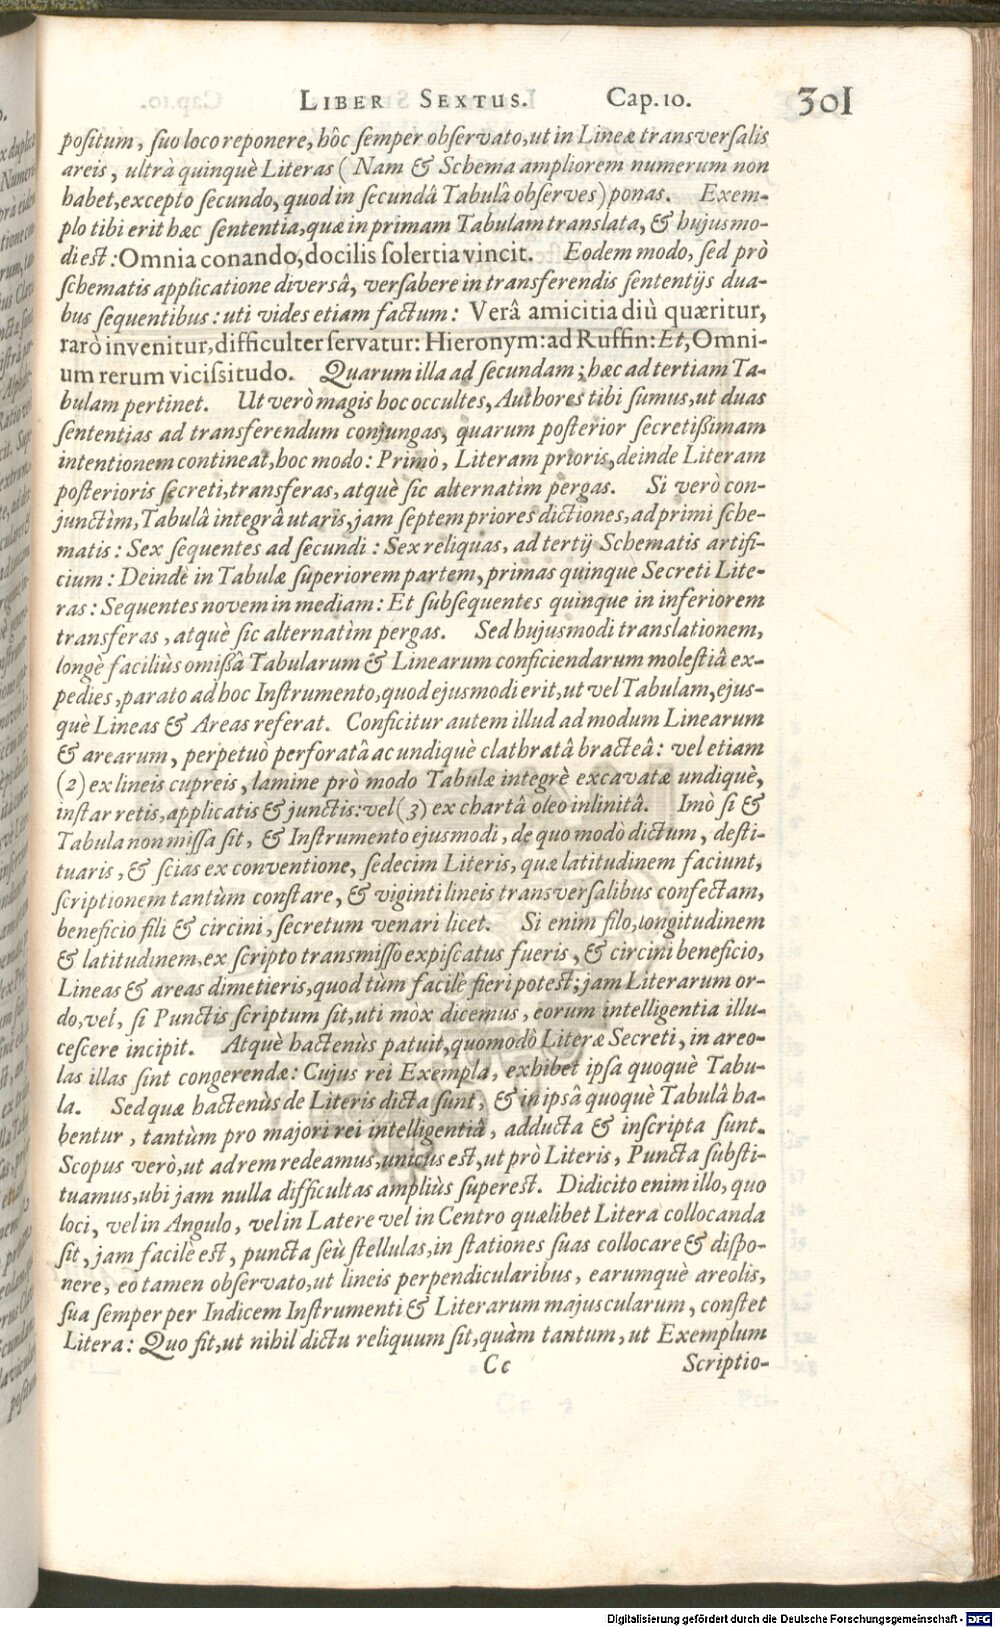 LIBER SEXTUS. Cap. 10. 301
positum, suo loco reponere, hôc semper observato, ut in Lineæ transversalis
areis, ultrà quinquè Literas (Nam & Schema ampliorem numerum non
habet, excepto secundo, quod in secundâ Tabulâ observes) ponas. Exem-
plo tibi erit hæc sententia, quæ in primam Tabulam translata, & hujusmo-
di est: Omnia conando, docilis solertia vincit. Eodem modo, sed prò
schematis applicatione diversâ, versabere in transferendis sententijs dua-
bus sequentibus: uti vides etiam factum: Verâ amicitia diù quæritur,
rarò invenitur, difficulter servatur: Hieronym: ad Ruffin: Et, Omni-
um rerum vicissitudo. Quarum illa ad secundam; hæc ad tertiam Ta-
bulam pertinet. Ut verò magis hoc occultes, Authores tibi sumus, ut duas
sententias ad transferendum conjungas, quarum posterior secretißimam
intentionem contineat, hoc modo: Primò, Literam prioris, deinde Literam
posterioris secreti, transferas, atquè sic alternatìm pergas. Si verò con-
junctìm, Tabulâ integrâ utaris, jam septem priores dictiones, ad primi sche-
matis: Sex sequentes ad secundi: Sex reliquas, ad tertij Schematis artifi-
cium: Deindè in Tabulæ superiorem partem, primas quinque Secreti Lite-
ras: Sequentes novem in mediam: Et subsequentes quinque in inferiorem
transferas, atquè sic alternatìm pergas. Sed hujusmodi translationem,
longè faciliùs omißâ Tabularum & Linearum conficiendarum molestiâ ex-
pedies, parato ad hoc Instrumento, quod ejusmodi erit, ut vel Tabulam, ejus-
què Lineas & Areas referat. Conficitur autem illud ad modum Linearum
& arearum, perpetuò perforatâ ac undiquè clathratâ bracteâ: vel etiam
(2) ex lineis cupreis, lamine prò modo Tabulæ integrè excavatæ undiquè,
instar retis, applicatis & junctis: vel (3) ex chartâ oleo inlinitâ. Imò si &
Tabula non missa sit, & Instrumento ejusmodi, de quo modò dictum, desti-
tuaris, & scias ex conventione, sedecim Literis, quæ latitudinem faciunt,
scriptionem tantùm constare, & viginti lineis transversalibus confectam,
beneficio fili & circini, secretum venari licet. Si enim filo, longitudinem
& latitudinem, ex scripto transmisso expiscatus fueris, & circini beneficio,
Lineas & areas dimetieris, quod tùm facilè fieri potest; jam Literarum or-
do, vel, si Punctis scriptum sit, uti mox dicemus, eorum intelligentia illu-
cescere incipit. Atquè hactenùs patuit, quomodò Literæ Secreti, in areo-
las illas sint congerendæ: Cujus rei Exempla, exhibet ipsa quoquè Tabu-
la. Sed quæ hactenùs de Literis dicta sunt, & in ipsâ quoquè Tabulâ ha-
bentur, tantùm pro majori rei intelligentiâ, adducta & inscripta sunt.
Scopus verò, ut ad rem redeamus, unicus est, ut prò Literis, Puncta substi-
tuamus, ubi jam nulla difficultas ampliùs superest. Didicito enim illo, quo
loci, vel in Angulo, vel in Latere vel in Centro quælibet Litera collocanda
sit, jam facilè est, puncta seù stellulas, in stationes suas collocare & dispo-
nere, eo tamen observato, ut lineis perpendicularibus, earumquè areolis,
sua semper per Indicem Instrumenti & Literarum majuscularum, constet
Litera: Quo fit, ut nihil dictu reliquum sit, quàm tantum, ut Exemplum
Cc Scriptio-
Digitalisierung gefördert durch die Deutsche Forschungsgemeinschaft - DFG